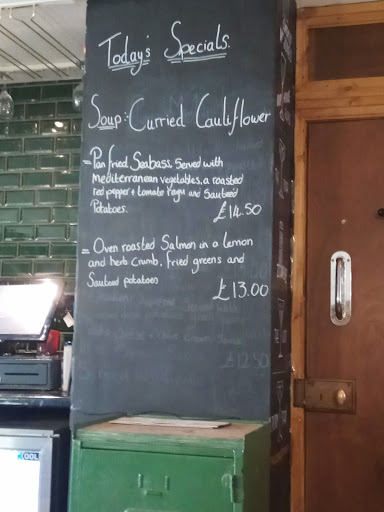 Today's Specials.
Soup: Curried Cauliflower
= Pan fried Seabass, Served with
mediterranean vegetables, a roasted
red pepper + tomato ragu and Sauteed
Potatoes. £14.50
= Oven roasted Salmon in a lemon
and herb crumb, fried greens and
Sauteed potatoes £13.00
£12.50